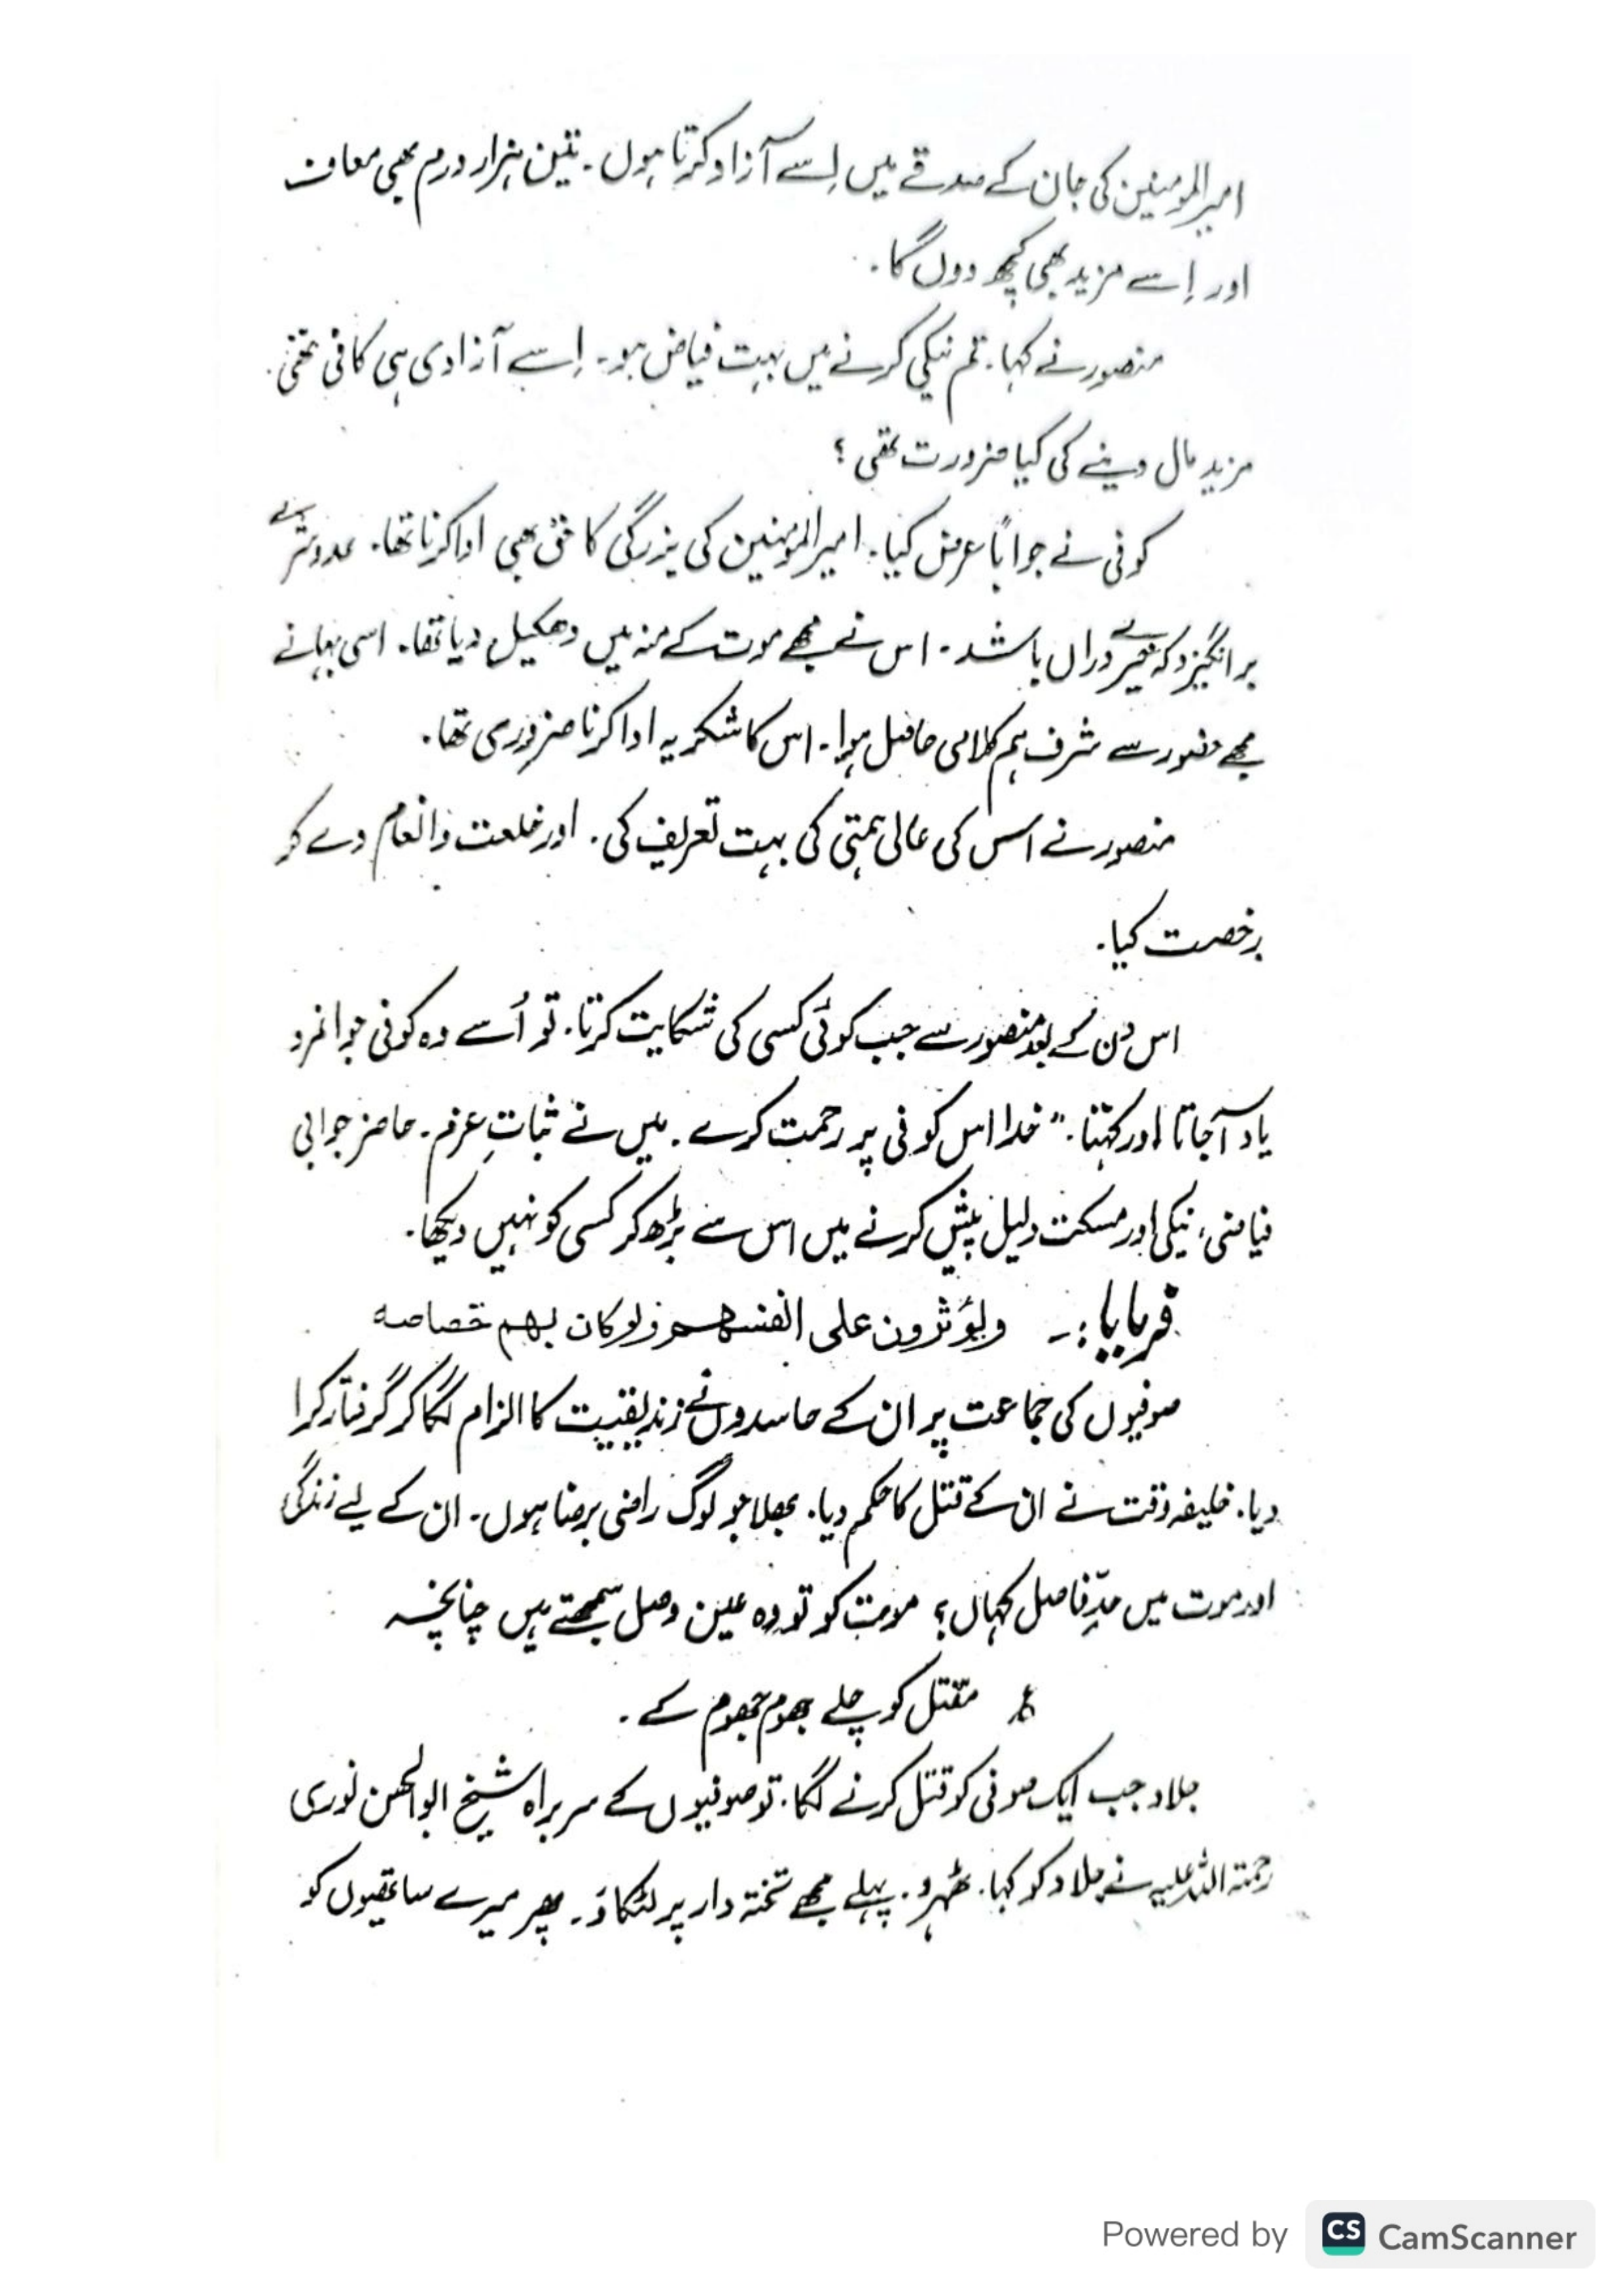 امیرالمومنین کی جان کے صدقے میں اِسے آزاد کرتا ہوں۔ تین ہزار درم بھی معاف
اور اِسے مزید بھی کچھ دوں گا۔
منصور نے کہا۔ تم نیکی کرنے میں بہت فیاض ہو۔ اِسے آزادی ہی کافی تھی۔
مزید مال دینے کی کیا ضرورت تھی؟
کوفی نے جواباً عرض کیا۔ امیرالمومنین کی بزرگی کا حق بھی ادا کرنا تھا۔ عدو شرے
بر انگیزد کہ خیرے دراں باشد۔ اس نے مجھے موت کے منہ میں دھکیل دیا تھا۔ اسی بہانے
مجھے حضور سے شرف ہم کلامی حاصل ہوا۔ اس کا شکریہ ادا کرنا ضروری تھا۔
منصور نے اس کی عالی ہمتی کی بہت تعریف کی۔ اور خلعت و انعام دے کر
رخصت کیا۔
اس دن کے بعد منصور سے جب کوئی کسی کی شکایت کرتا۔ تو اُسے وہ کوفی جوانمرد
یاد آجاتا اور کہتا۔ "خدا اس کوفی پر رحمت کرے۔ میں نے ثباتِ عزم۔ حاضر جوابی
فیاضی، نیکی اور مسکت دلیل پیش کرنے میں اس سے بڑھ کر کسی کو نہیں دیکھا۔
فرمایا:۔ ویؤثرون علی انفسھم ولو کان بھم خصاصہ
صوفیوں کی جماعت پر ان کے حاسدوں نے زندیقیت کا الزام لگا کر گرفتار کرا
دیا۔ خلیفہ وقت نے ان کے قتل کا حکم دیا۔ بھلا جو لوگ راضی برضا ہوں۔ ان کے لیے زندگی
اور موت میں حدِّ فاصل کہاں؟ موت کو تو وہ عین وصل سمجھتے ہیں چنانچہ
ع مقتل کو چلے جھوم جھوم کے۔
جلاد جب ایک صوفی کو قتل کرنے لگا۔ تو صوفیوں کے سربراہ شیخ ابوالحسن نوری
رحمتہ اللہ علیہ نے جلاد کو کہا۔ ٹھہرو۔ پہلے مجھے تختہ دار پر لٹکاؤ۔ پھر میرے ساتھیوں کو
Powered by CS CamScanner